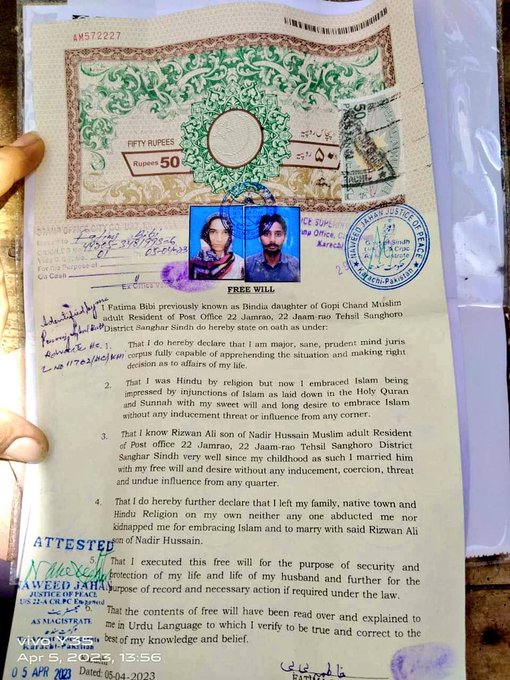 AM572227
FIFTY RUPEES
پچاس روپیہ
Rupees 50
۵۰ روپیہ
50
Fatima Bibi
05-04-23
Ex Office
Karachi
NAVEED JAHAN JUSTICE OF PEACE
Karachi-Pakistan
FREE WILL
I Fatima Bibi previously known as Bindia daughter of Gopi Chand Muslim
adult Resident of Post Office 22 Jamrao, 22 Jaam-rao Tehsil Sanghoro
District Sanghar Sindh do hereby state on oath as under:
Identified by me
Advocate Hc.
1. That I do hereby declare that I am major, sane, prudent mind juris
corpus fully capable of apprehending the situation and making right
decision as to affairs of my life.
2. That I was Hindu by religion but now I embraced Islam being
impressed by injunctions of Islam as laid down in the Holy Quran
and Sunnah with my sweet will and long desire to embrace Islam
without any inducement threat or influence from any corner.
3. That I know Rizwan Ali son of Nadir Hussain Muslim adult Resident
of Post office 22 Jamrao, 22 Jaam-rao Tehsil Sanghoro District
Sanghar Sindh very well since my childhood as such I married him
with my free will and desire without any inducement, coercion, threat
and undue influence from any quarter.
4. That I do hereby further declare that I left my family, native town and
Hindu Religion on my own neither any one abducted me nor
kidnapped me for embracing Islam and to marry with said Rizwan Ali
son of Nadir Hussain.
ATTESTED
NAWEED JAHAN
JUSTICE OF PEACE
U/S 22-A CR.PC
AS MAGISTRATE
Karachi-Pakistan
05 APR 2023
5. That I executed this free will for the purpose of security and
protection of my life and life of my husband and further for the
purpose of record and necessary action if required under the law.
6. That the contents of free will have been read over and explained to
me in Urdu Language to which I verify to be true and correct to the
best of my knowledge and belief.
Dated: 05-04-2023
فاطمہ بی بی
vivo Y35
Apr 5, 2023, 13:56